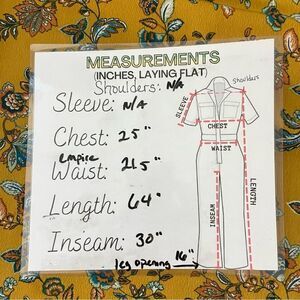 MEASUREMENTS
(INCHES, LAYING FLAT)
Shoulders: N/A
Sleeve: N/A
Chest: 25"
Empire
Waist: 21.5"
Length: 64"
Inseam: 30"
leg opening 16"
Shoulders
SLEEVE
CHEST
WAIST
INSEAM
LENGTH